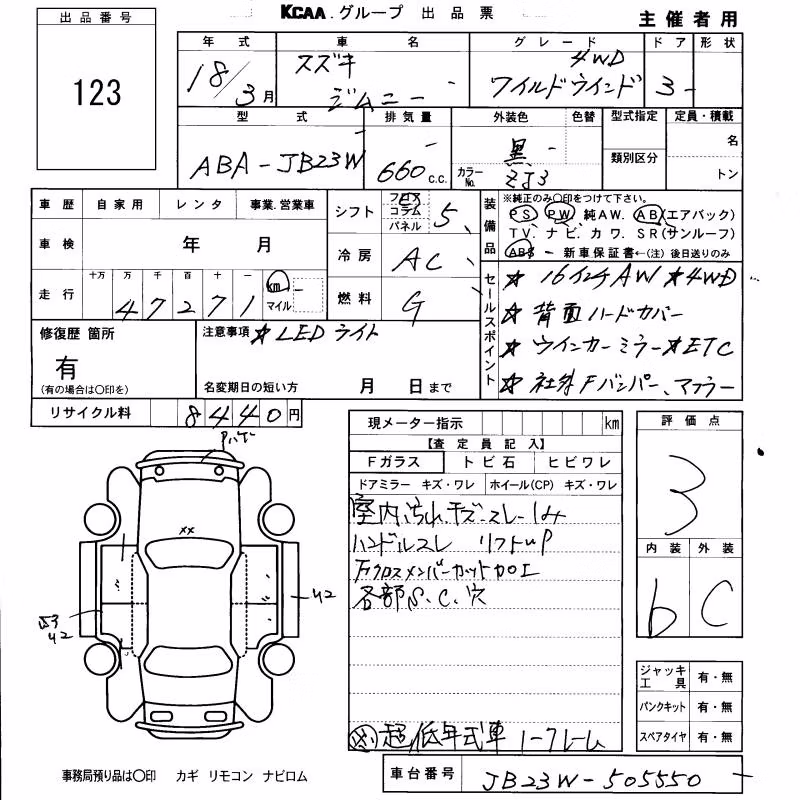 出品番号
KCAA.グループ 出品票
主催者用
123
年式 車名 グレード ドア 形状
18/3月 スズキ ジムニー - 4WD ワイルドウインド 3 -
型式 排気量 外装色 色替 型式指定 定員・積載
ABA-JB23W 660c.c. 黒 - カラーNo. ZJ3 類別区分 名 トン
車歴 自家用 レンタ 事業.営業車
シフト フロア コラム パネル 5
装備品
※純正のみ〇印をつけて下さい。
PS PW 純AW. AB(エアバック)
TV. ナビ. カワ. SR(サンルーフ)
ABS - 新車保証書←(注)後日送りのみ
車検 年 月
冷房 AC
走行 十万 万 千 百 十 一 km マイル
47271
燃料 G
セールスポイント
☆16インチAW ☆4WD
☆背面ハードカバー
☆ウインカーミラー☆ETC
☆社外Fバンパー、マフラー
修復歴 箇所
有
(有の場合は〇印を)
注意事項 ☆LEDライト
名変期日の短い方 月 日まで
リサイクル料 8440円
現メーター指示 km
【査定員記入】
Fガラス トビ石 ヒビワレ
ドアミラー キズ・ワレ ホイール(CP) キズ・ワレ
室内汚れ、キズ・スレ・しみ
ハンドルスレ リフトup
Fクロスメンバーカット加工
各部S.C.穴
超低年式車
評価点
3
内装 外装
b C
XX
U2
U2
ジャッキ工具 有・無
パンクキット 有・無
スペアタイヤ 有・無
事務局預り品は〇印 カギ リモコン ナビロム
車台番号 JB23W-505550